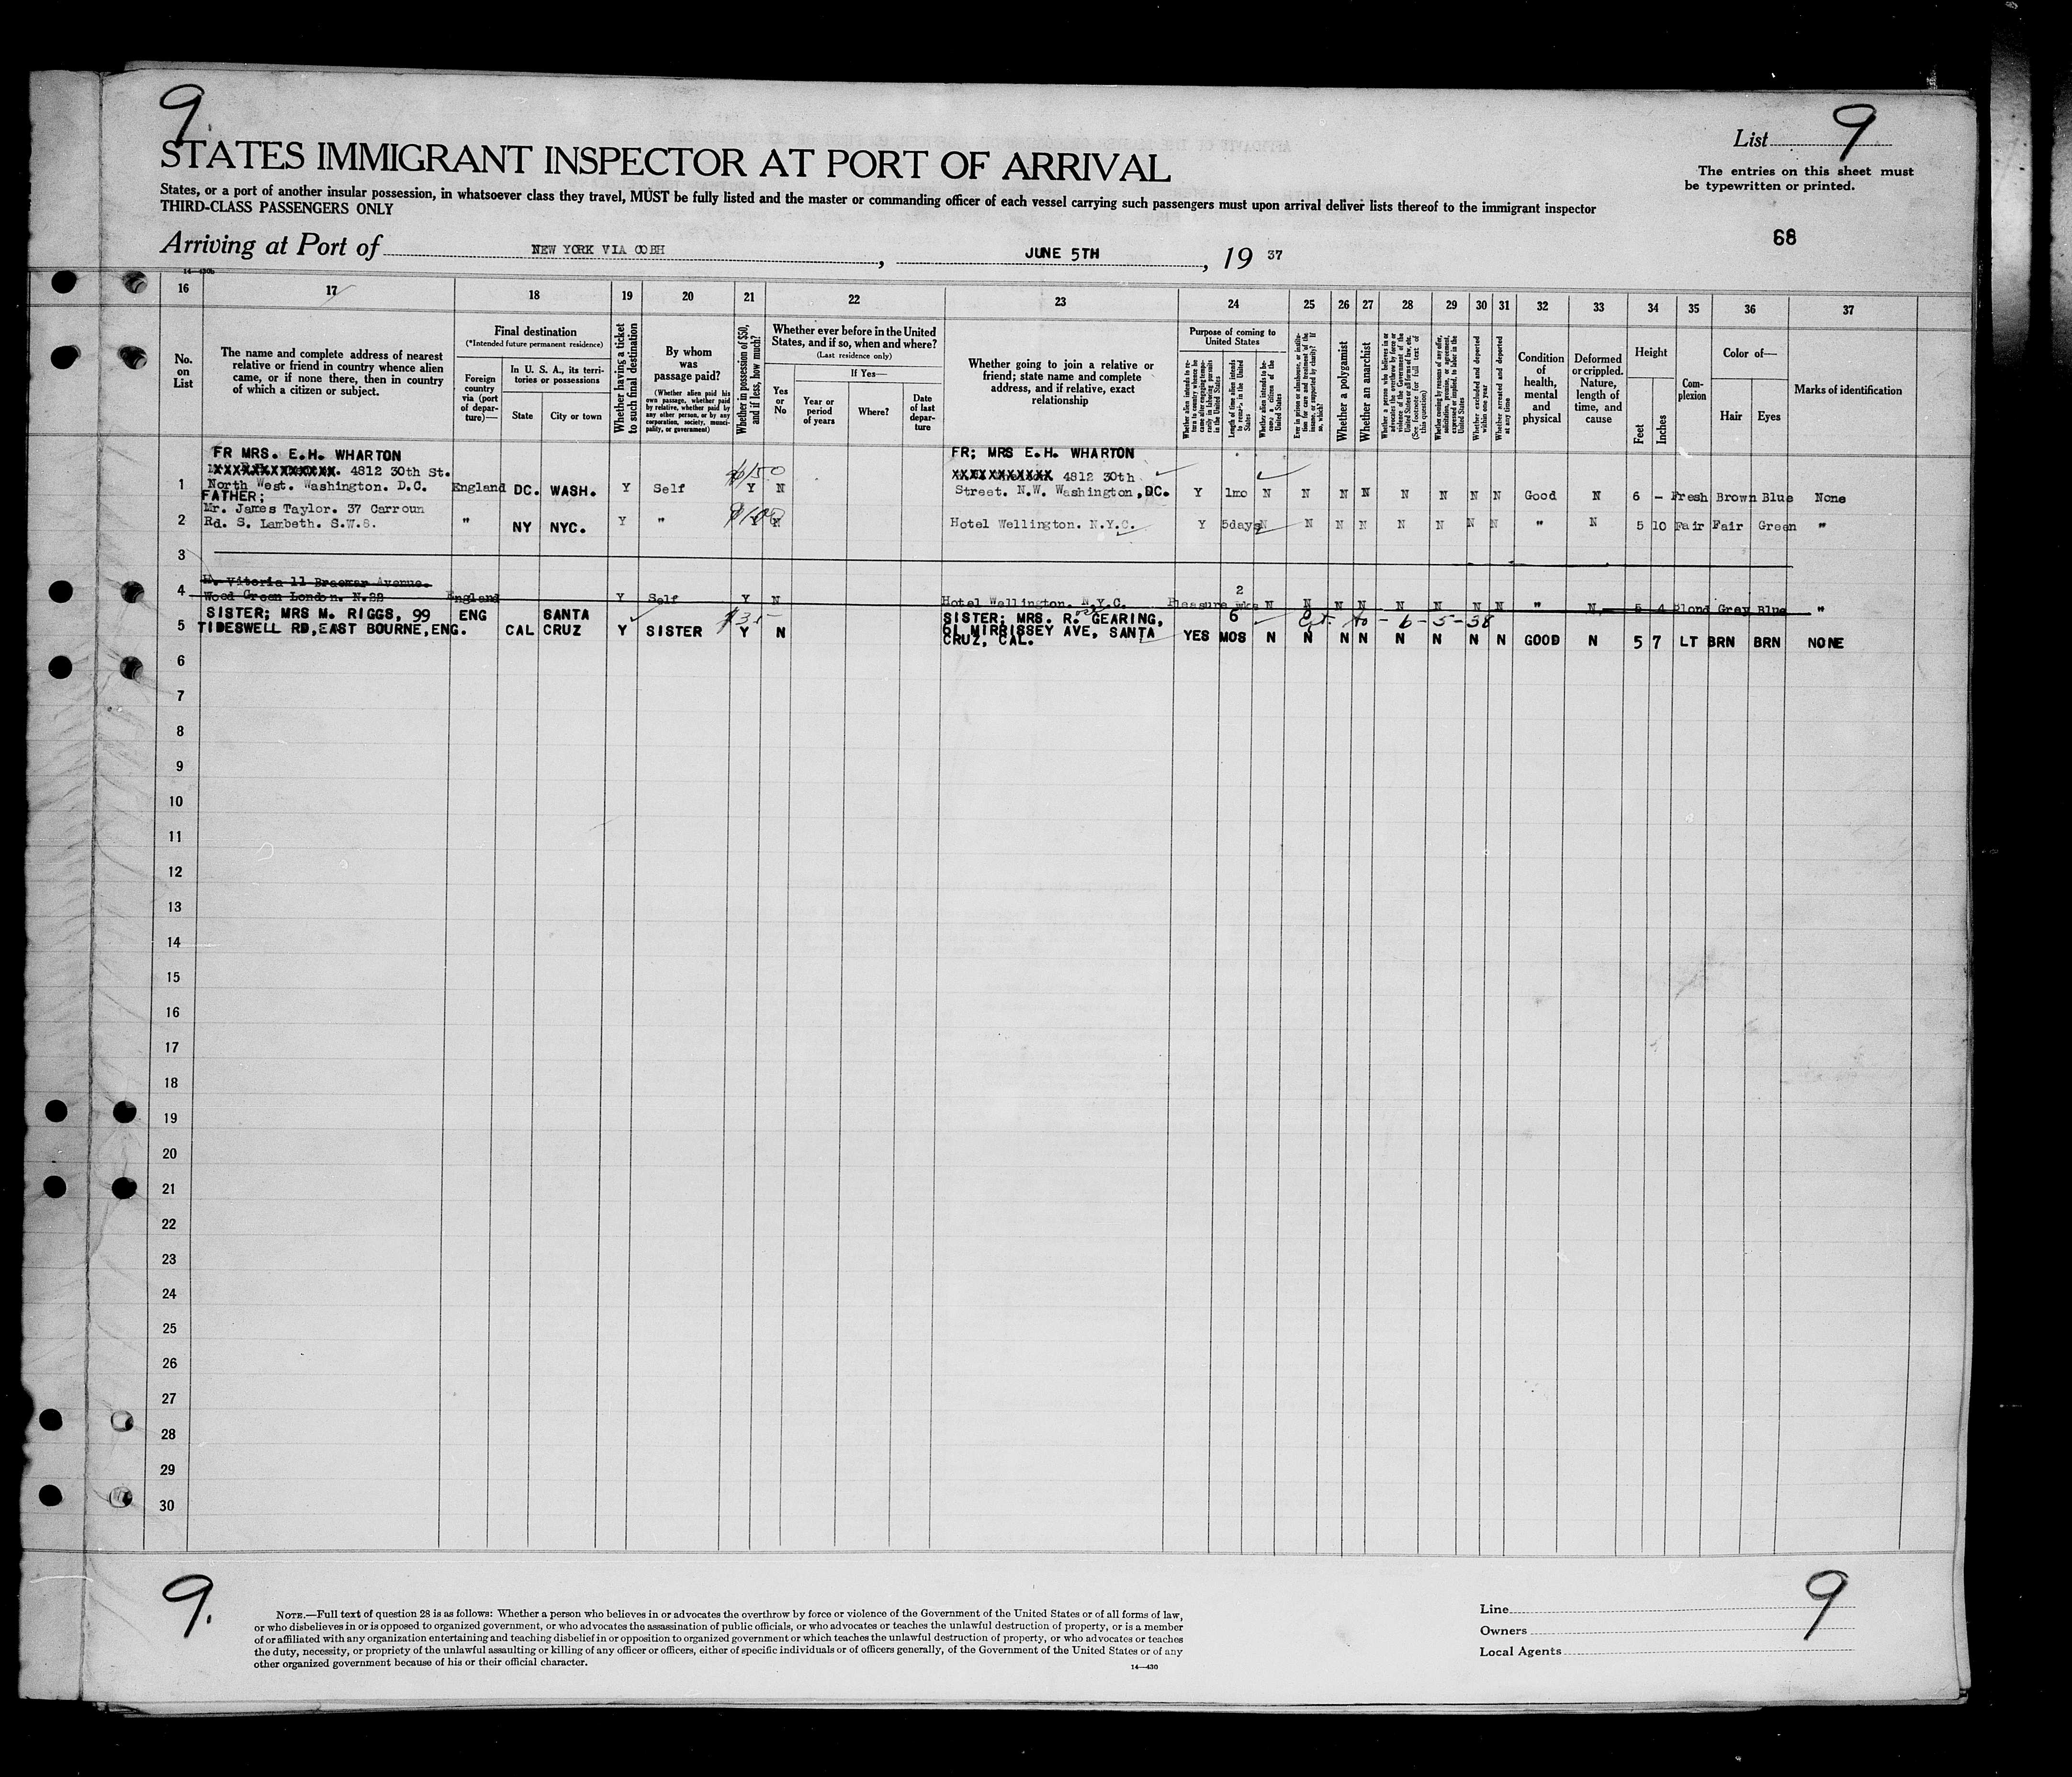 9.
9
List
The entries on this sheet must
be typewritten or printed.
STATES IMMIGRANT INSPECTOR AT PORT OF ARRIVAL
States, or a port of another insular possession, in whatsoever class they travel, MUST be fully listed and the master or commanding officer of each vessel carrying such passengers must upon arrival deliver lists thereof to the immigrant inspector
THIRD-CLASS PASSENGERS ONLY
68
Arriving at Port of NEW YORK VIA COBH, JUNE 5TH, 1937
16 17 18 19 20 21 22 23 24 25 26 27 28 29 30 31 32 33 34 35 36 37
No. on List
The name and complete address of nearest
relative or friend in country whence alien
came, or if none there, then in country
of which a citizen or subject.
Final destination
(*Intended future permanent residence)
Foreign country via (port of departure)—
In U. S. A., its territories or possessions
State
City or town
Whether having a ticket to such final destination
By whom was passage paid?
(Whether alien paid his own passage, whether paid by relative, whether paid by any other person, or by any corporation, society, municipality, or government)
Whether in possession of $50, and if less, how much?
Whether ever before in the United
States, and if so, when and where?
(Last residence only)
Yes or No
If Yes—
Year or period of years
Where?
Date of last departure
Whether going to join a relative or
friend; state name and complete
address, and if relative, exact
relationship
Purpose of coming to United States
Length of time alien intends to remain in the United States
Whether a polygamist
Whether an anarchist
Whether excluded and deported within one year
Whether arrested and deported at any time
Condition of health, mental and physical
Deformed or crippled. Nature, length of time, and cause
Height
Feet
Inches
Complexion
Color of—
Hair
Eyes
Marks of identification
FR MRS. E.H. WHARTON FR; MRS E.H. WHARTON
4812 30th St. $150 4812 30th
1 North West. Washington. D.C. England DC. WASH. Y Self Y N Street. N.W. Washington, DC. Y 1mo N N N N N N N N Good N 6 - Fresh Brown Blue None
FATHER;
Mr. James Taylor. 37 Carroun $100
2 Rd. S. Lambeth. S.W.8. " NY NYC. Y " N Hotel Wellington. N.Y.C. Y 5days N N N N N N N N " N 5 10 Fair Fair Green "
3
Vitoria 11 Braemar Avenue. 2
4 Wood Green London. N.22 England Y Self Y N Hotel Wellington. N.Y.C. Pleasure wks N N N N N N N N " N 5 4 Blond Grey Blue "
SISTER; MRS M. RIGGS, 99 ENG SANTA $35 SISTER; MRS. R. GEARING, 6 to - 6-5-38
5 TIDESWELL RD, EAST BOURNE, ENG. CAL CRUZ Y SISTER Y N 61 MIRRISSEY AVE, SANTA YES MOS N N N N N N N N GOOD N 5 7 LT BRN BRN NONE
CRUZ, CAL.
6
7
8
9
10
11
12
13
14
15
16
17
18
19
20
21
22
23
24
25
26
27
28
29
30
9.
NOTE.—Full text of question 28 is as follows: Whether a person who believes in or advocates the overthrow by force or violence of the Government of the United States or of all forms of law,
or who disbelieves in or is opposed to organized government, or who advocates the assassination of public officials, or who advocates or teaches the unlawful destruction of property, or is a member
of or affiliated with any organization entertaining and teaching disbelief in or opposition to organized government or which teaches the unlawful destruction of property, or who advocates or teaches
the duty, necessity, or propriety of the unlawful assaulting or killing of any officer or officers, either of specific individuals or of officers generally, of the Government of the United States or of any
other organized government because of his or their official character.
14—430
Line
Owners
Local Agents
9